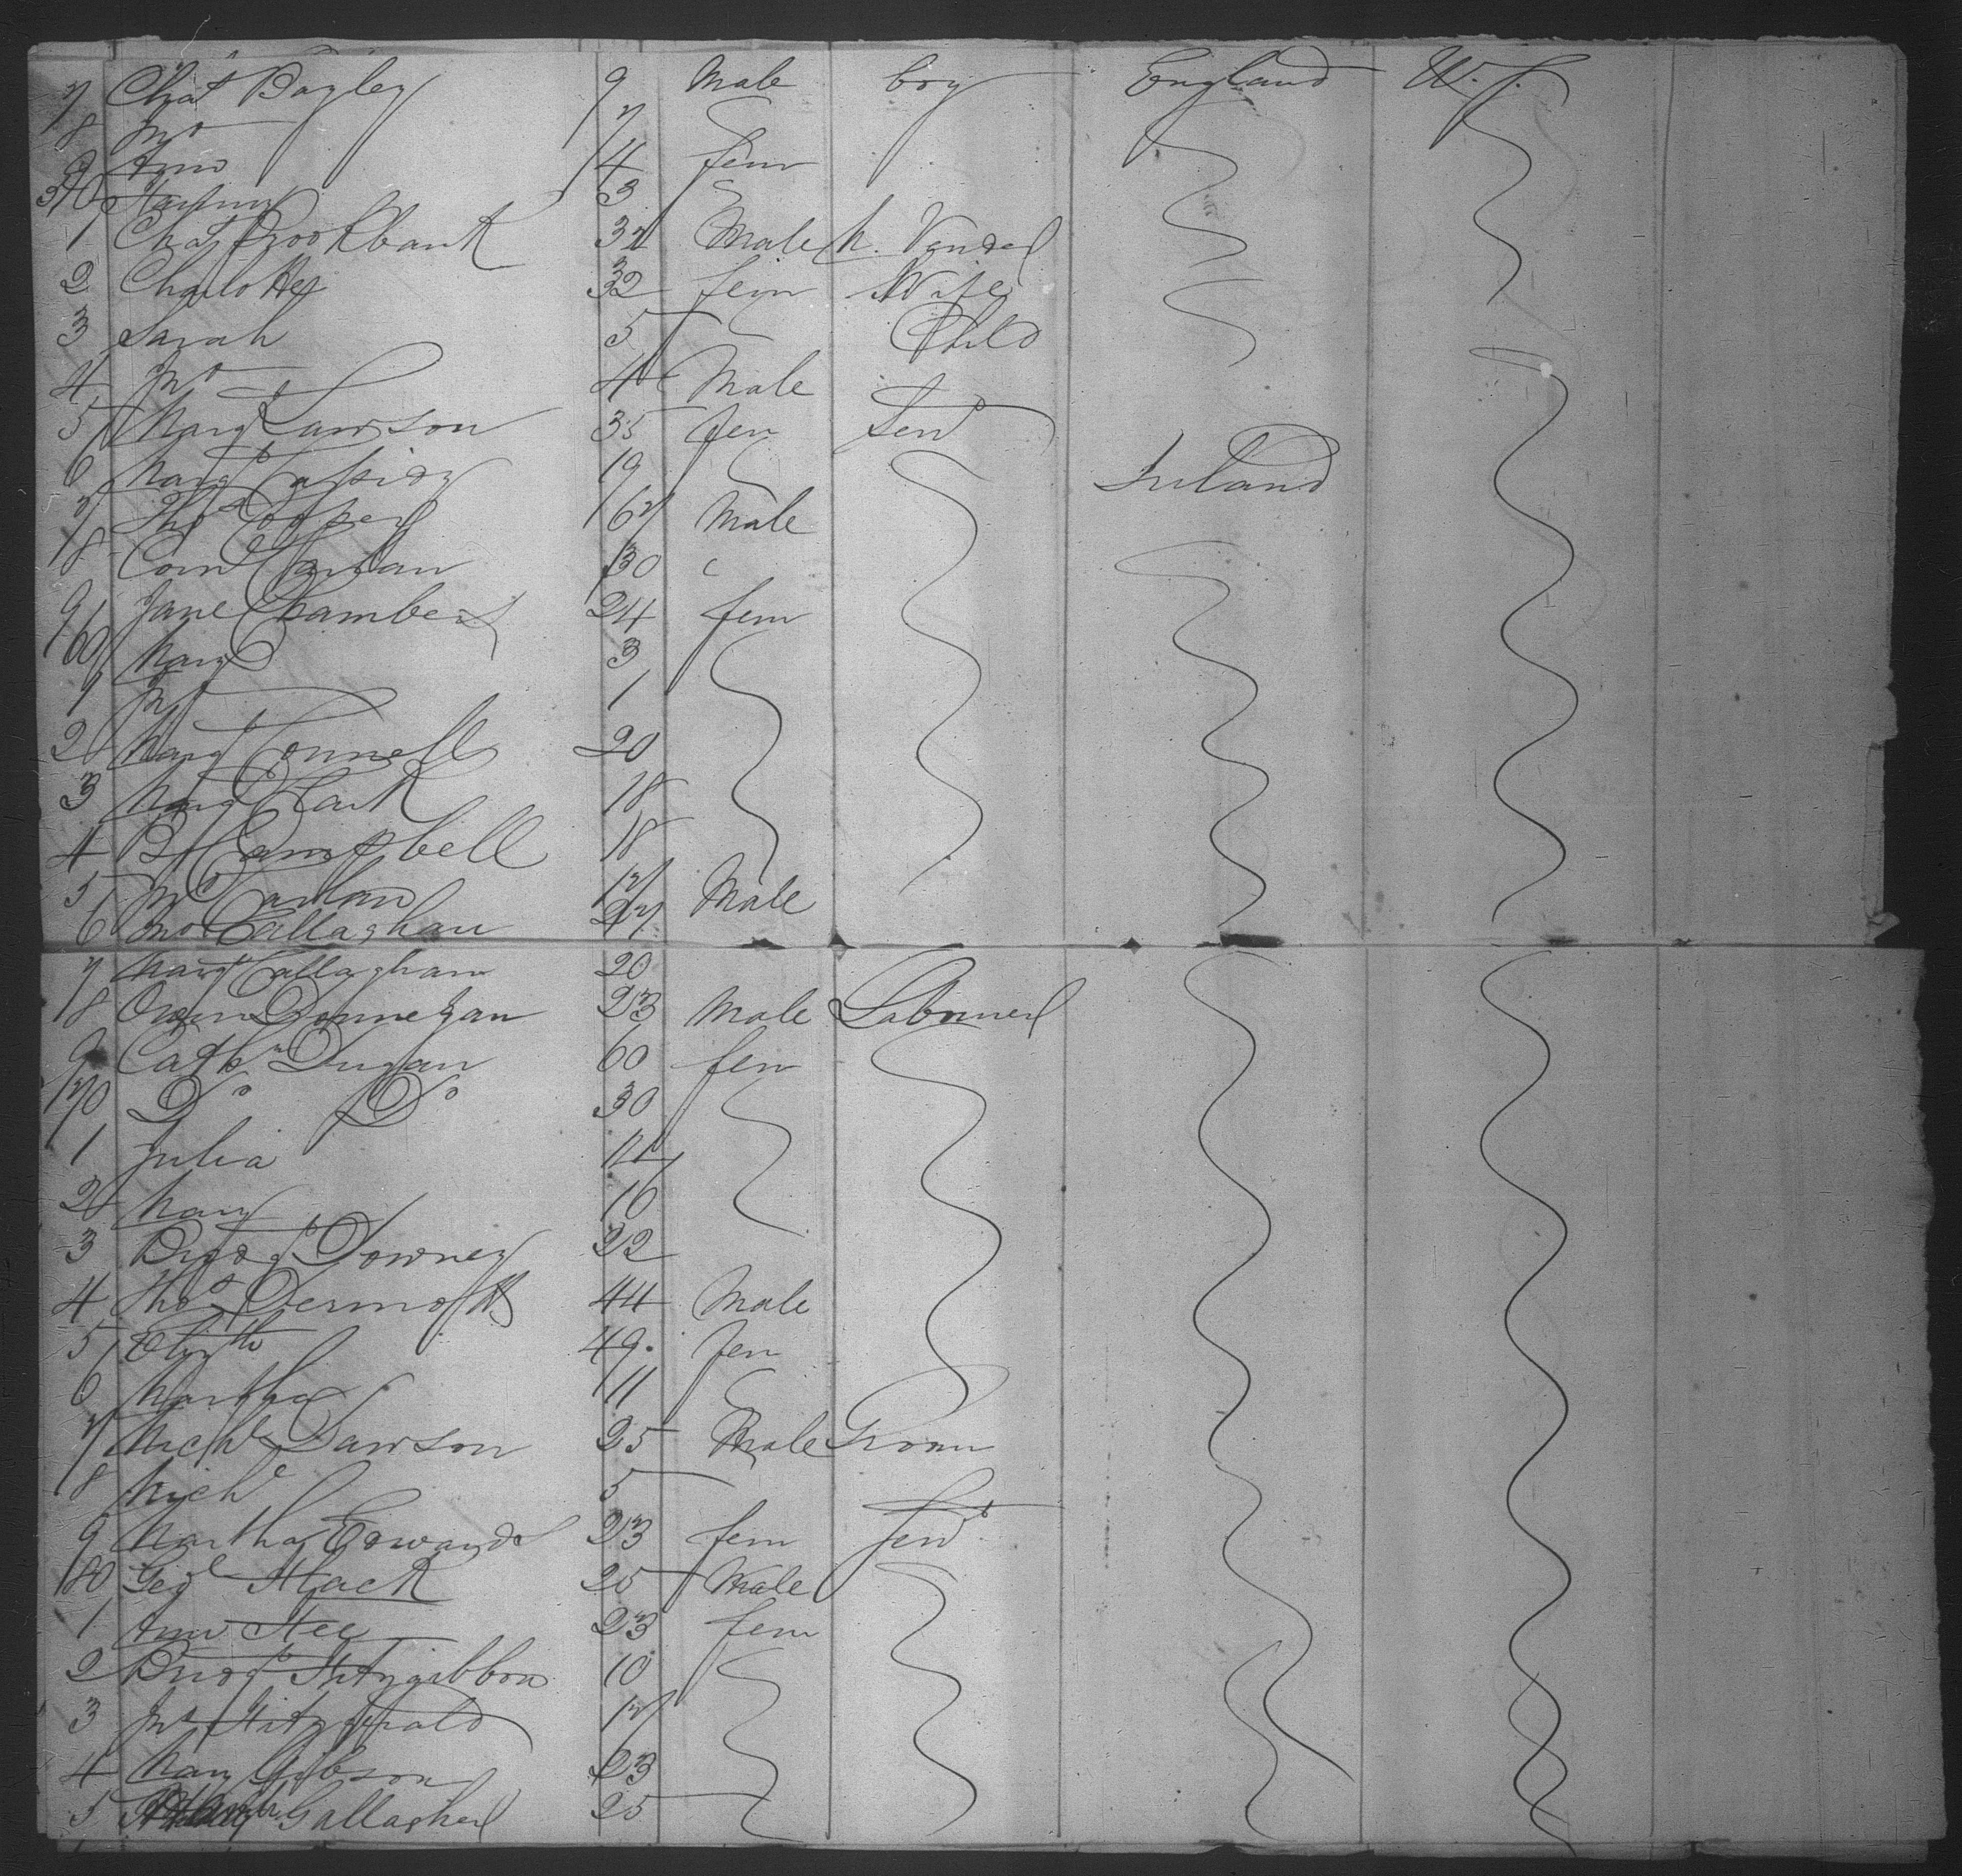 7 Chas Bagley 9 Male boy England U.S.
8 Jno 7
9 Ann 4 fem
3
1 Chas Brookbank 37 Male
2 Charlotte 32 fem Wife
3 Sarah 5 Child
4 Jno 4 Male
5 Margt Lawson 35 fem Servt
6 Margt Cassidy 19 Ireland
7 Thos Cooper 67 Male
8 Corns 30
9 Jane Chambers 24 fem
160 Mary 3
1 Jno 1
2 Margt Connell 20
3 Margt Clark 18
4 Bt Campbell 18
5 Jno Carlan 17 Male
6 Jno Callaghan 27
7 Margt Callaghan 20
8 Owen Donnegan 23 Male Labourer
9 Cathn Dugan 60 fem
170 Do Do 30
1 Julia
2 Mary 16
3 Bridgt Downey 22
4 Thos Dermott 44 Male
5 Elizth 49 fem
6 Martha 11
7 Michl Dawson 25 Male Groom
8 Michl 5
9 Martha Edwards 23 fem Servt
180 Flack 25 Male
1 Ann Fee 23 fem
2 Bridgt Fitzgibbon 10
3 Jno Fitzgerald 17
4 Mary Gibson 23
5 Gallagher 25